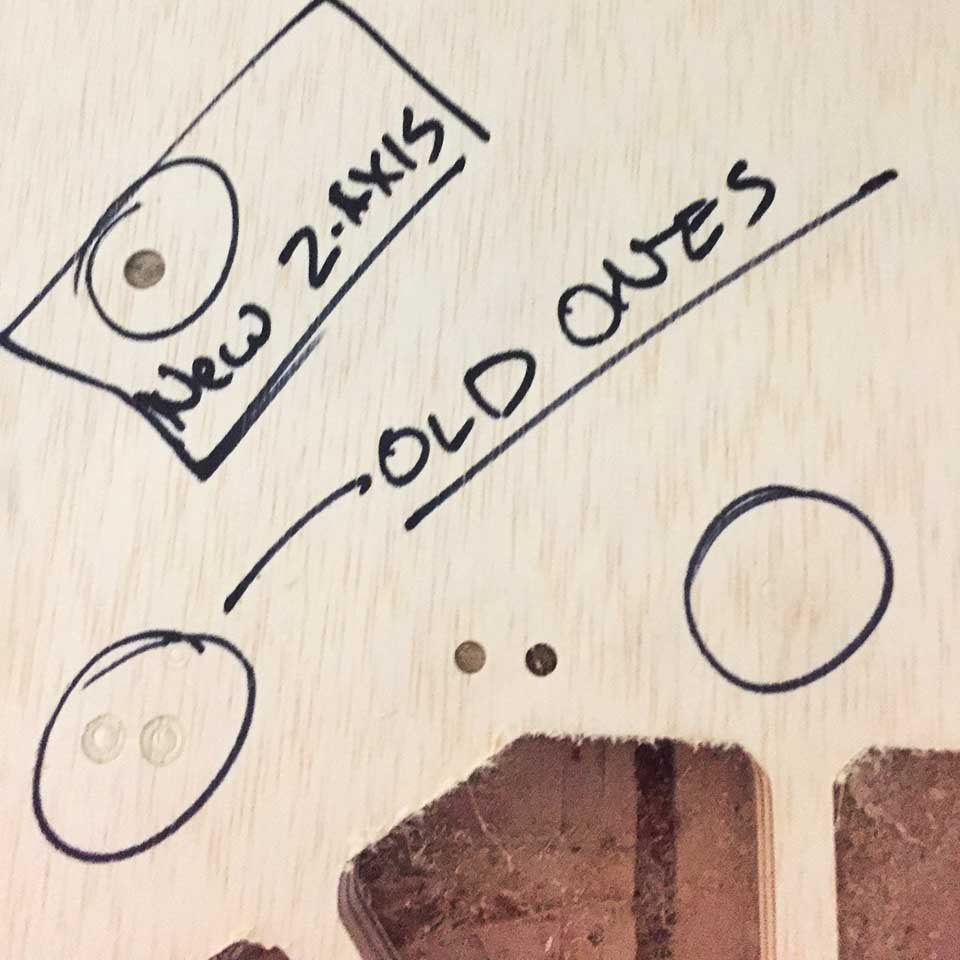 New Z-AXIS
OLD ONES